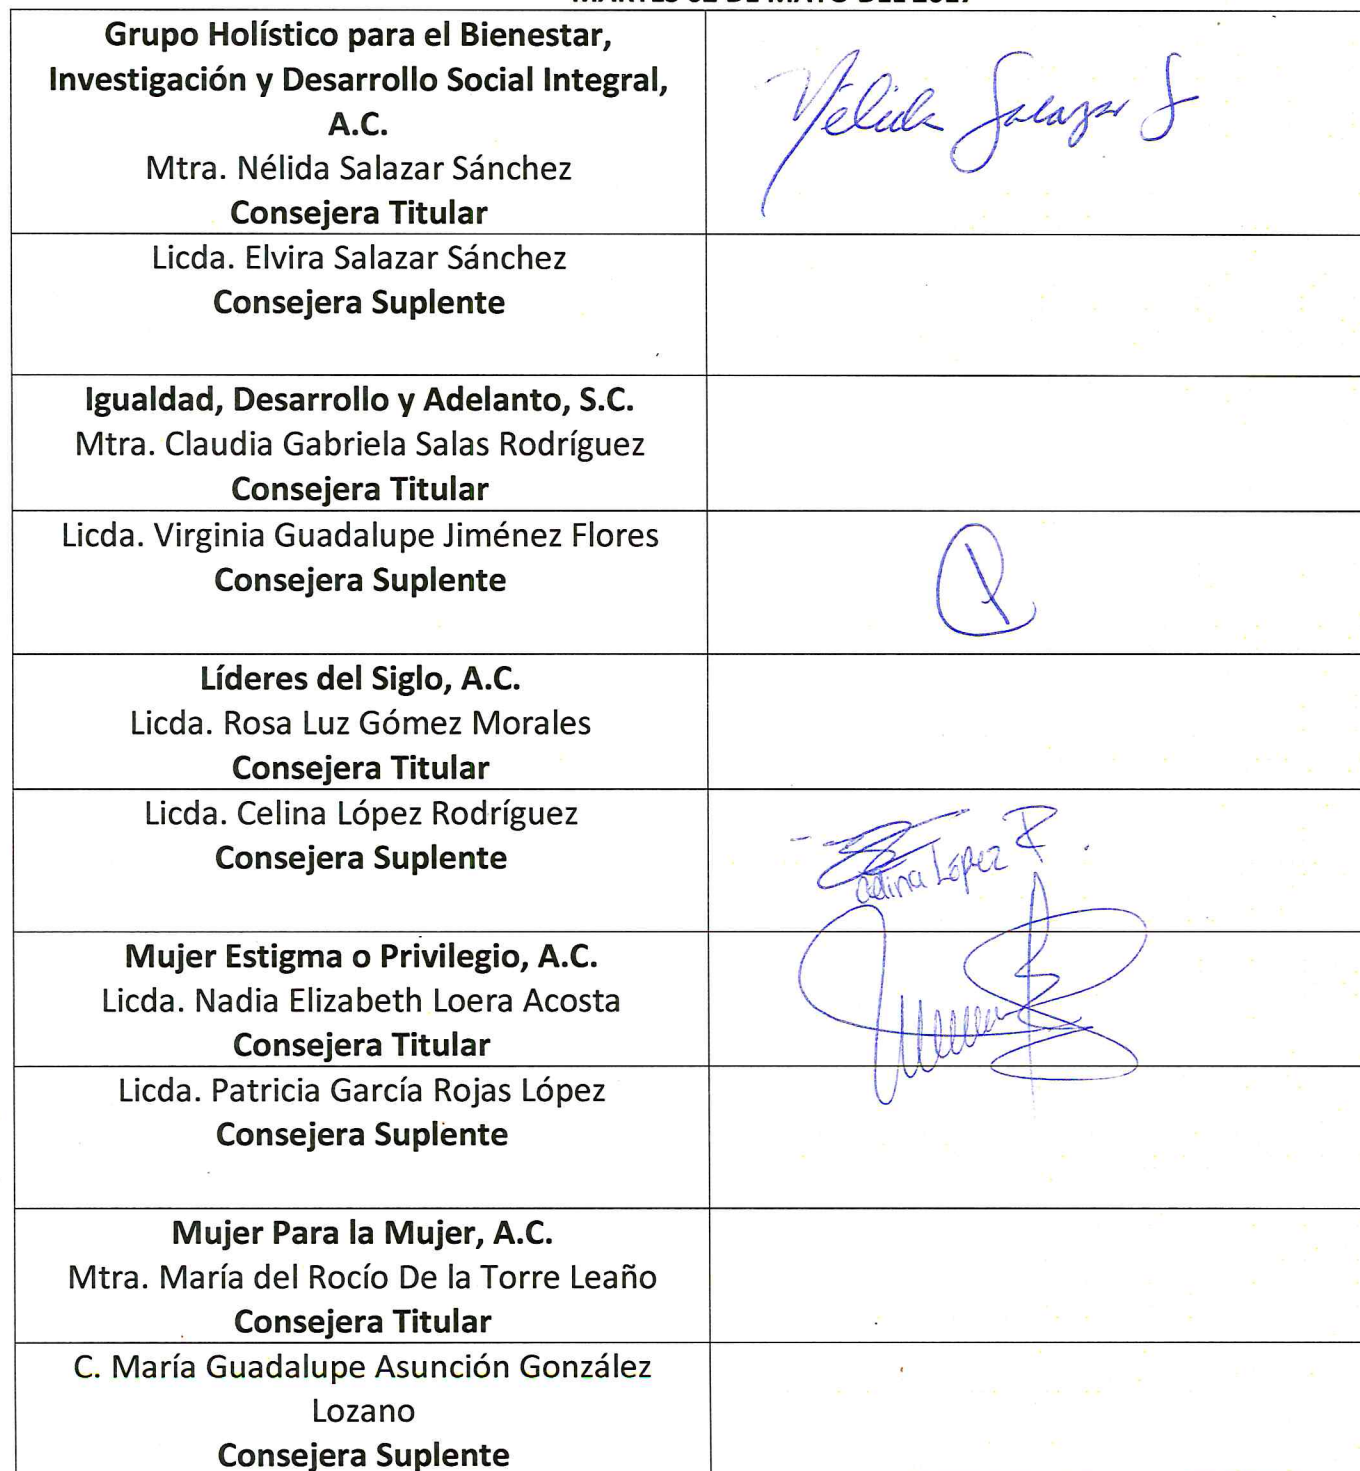 MARTES 02 DE MAYO DEL 2017
Grupo Holístico para el Bienestar,
Investigación y Desarrollo Social Integral,
A.C.
Mtra. Nélida Salazar Sánchez
Consejera Titular
Nélida Salazar S
Licda. Elvira Salazar Sánchez
Consejera Suplente
Igualdad, Desarrollo y Adelanto, S.C.
Mtra. Claudia Gabriela Salas Rodríguez
Consejera Titular
Licda. Virginia Guadalupe Jiménez Flores
Consejera Suplente
Líderes del Siglo, A.C.
Licda. Rosa Luz Gómez Morales
Consejera Titular
Licda. Celina López Rodríguez
Consejera Suplente
Celina López R.
Mujer Estigma o Privilegio, A.C.
Licda. Nadia Elizabeth Loera Acosta
Consejera Titular
Licda. Patricia García Rojas López
Consejera Suplente
Mujer Para la Mujer, A.C.
Mtra. María del Rocío De la Torre Leaño
Consejera Titular
C. María Guadalupe Asunción González
Lozano
Consejera Suplente